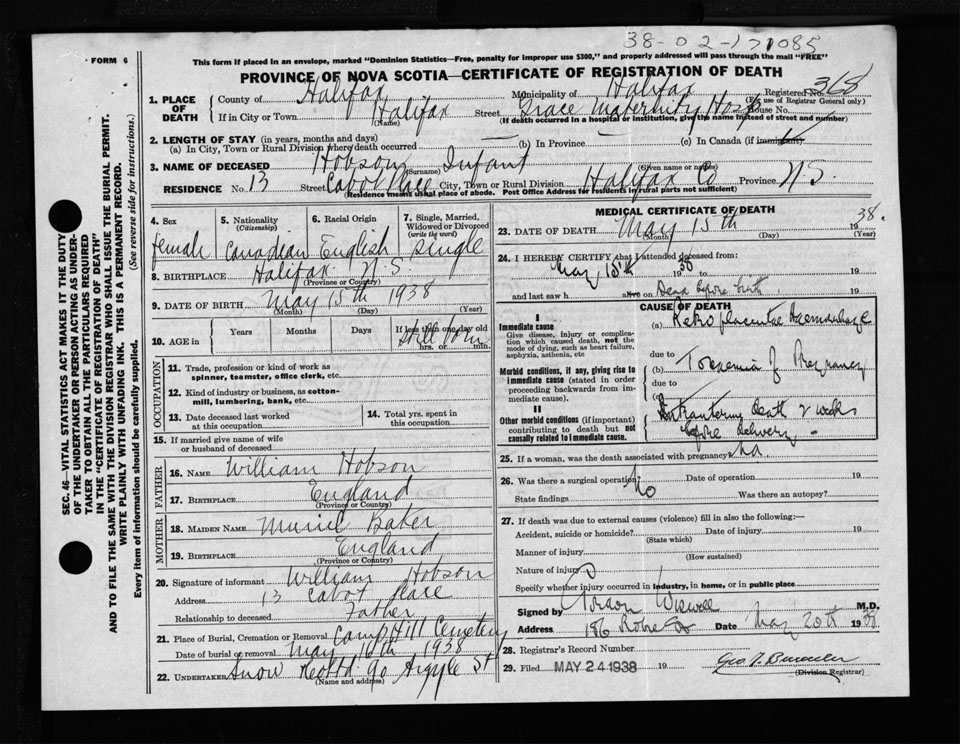 38-02-171085
FORM 6
This form if placed in an envelope, marked "Dominion Statistics—Free, penalty for improper use $300," and properly addressed will pass through the mail "FREE"
PROVINCE OF NOVA SCOTIA—CERTIFICATE OF REGISTRATION OF DEATH
1. PLACE OF DEATH
County of Halifax Municipality of Halifax Registered No. 368
(For use of Registrar General only)
If in City or Town Halifax (Name) Street Grace Maternity Hosp House No.
(If death occurred in a hospital or institution, give the name instead of street and number)
2. LENGTH OF STAY (in years, months and days)
(a) In City, Town or Rural Division where death occurred (b) In Province (c) In Canada (if immigrant)
3. NAME OF DECEASED Hobson (Surname) Infant (Given name or names)
RESIDENCE No. 13 Street Cabot Place City, Town or Rural Division Halifax Co Province N.S.
(Residence means usual place of abode. Post Office Address for residents in rural parts not sufficient)
4. Sex female
5. Nationality (Citizenship) Canadian
6. Racial Origin English
7. Single, Married, Widowed or Divorced (write the word) Single
8. BIRTHPLACE Halifax N.S (Province or Country)
9. DATE OF BIRTH May 15th 1938
(Month) (Day) (Year)
10. AGE in Years Months Days If less than one day old hrs. or min. Still born
OCCUPATION
11. Trade, profession or kind of work as spinner, teamster, office clerk, etc.
12. Kind of industry or business, as cotton-mill, lumbering, bank, etc.
13. Date deceased last worked at this occupation
14. Total yrs. spent in this occupation
15. If married give name of wife or husband of deceased
FATHER
16. NAME William Hobson
17. BIRTHPLACE England (Province or Country)
MOTHER
18. MAIDEN NAME Muriel Baker
19. BIRTHPLACE England (Province or Country)
20. Signature of informant William Hobson
Address 13 Cabot Place
Relationship to deceased Father
21. Place of Burial, Cremation or Removal Camp Hill Cemetery
Date of burial or removal May 16th 1938
22. UNDERTAKER Snow & Co Ltd 90 Argyle St
(Name and address)
MEDICAL CERTIFICATE OF DEATH
23. DATE OF DEATH May 15th 1938.
(Month) (Day) (Year)
24. I HEREBY CERTIFY that I attended deceased from:
May 15th 1938 to 19
and last saw h alive on Dead before birth 19
CAUSE OF DEATH
I
Immediate cause
Give disease, injury or complication which caused death, not the mode of dying, such as heart failure, asphyxia, asthenia, etc
(a) Retro placental Haemorrhage
due to
Morbid conditions, if any, giving rise to immediate cause (stated in order proceeding backwards from immediate cause).
(b) Toxemia of Pregnancy
due to
(c)
II
Other morbid conditions (if important) contributing to death but not causally related to immediate cause.
Intrauterine death 2 weeks
before delivery
25. If a woman, was the death associated with pregnancy? no.
26. Was there a surgical operation? No Date of operation 19
State findings Was there an autopsy?
27. If death was due to external causes (violence) fill in also the following:—
Accident, suicide or homicide? (State which) Date of injury 19
Manner of injury (How sustained)
Nature of injury
Specify whether injury occurred in industry, in home, or in public place
Signed by Wiswell M.D.
Address 186 Robie St Date May 20th 1938
28. Registrar's Record Number
29. Filed MAY 24 1938 19
(Division Registrar)
SEC. 46—VITAL STATISTICS ACT MAKES IT THE DUTY
OF THE UNDERTAKER OR PERSON ACTING AS UNDER-
TAKER TO OBTAIN ALL THE PARTICULARS REQUIRED
IN THE "CERTIFICATE OF REGISTRATION OF DEATH"
AND TO FILE THE SAME WITH THE DIVISION REGISTRAR WHO SHALL ISSUE THE BURIAL PERMIT.
WRITE PLAINLY WITH UNFADING INK. THIS IS A PERMANENT RECORD.
Every item of information should be carefully supplied. (See reverse side for instructions.)